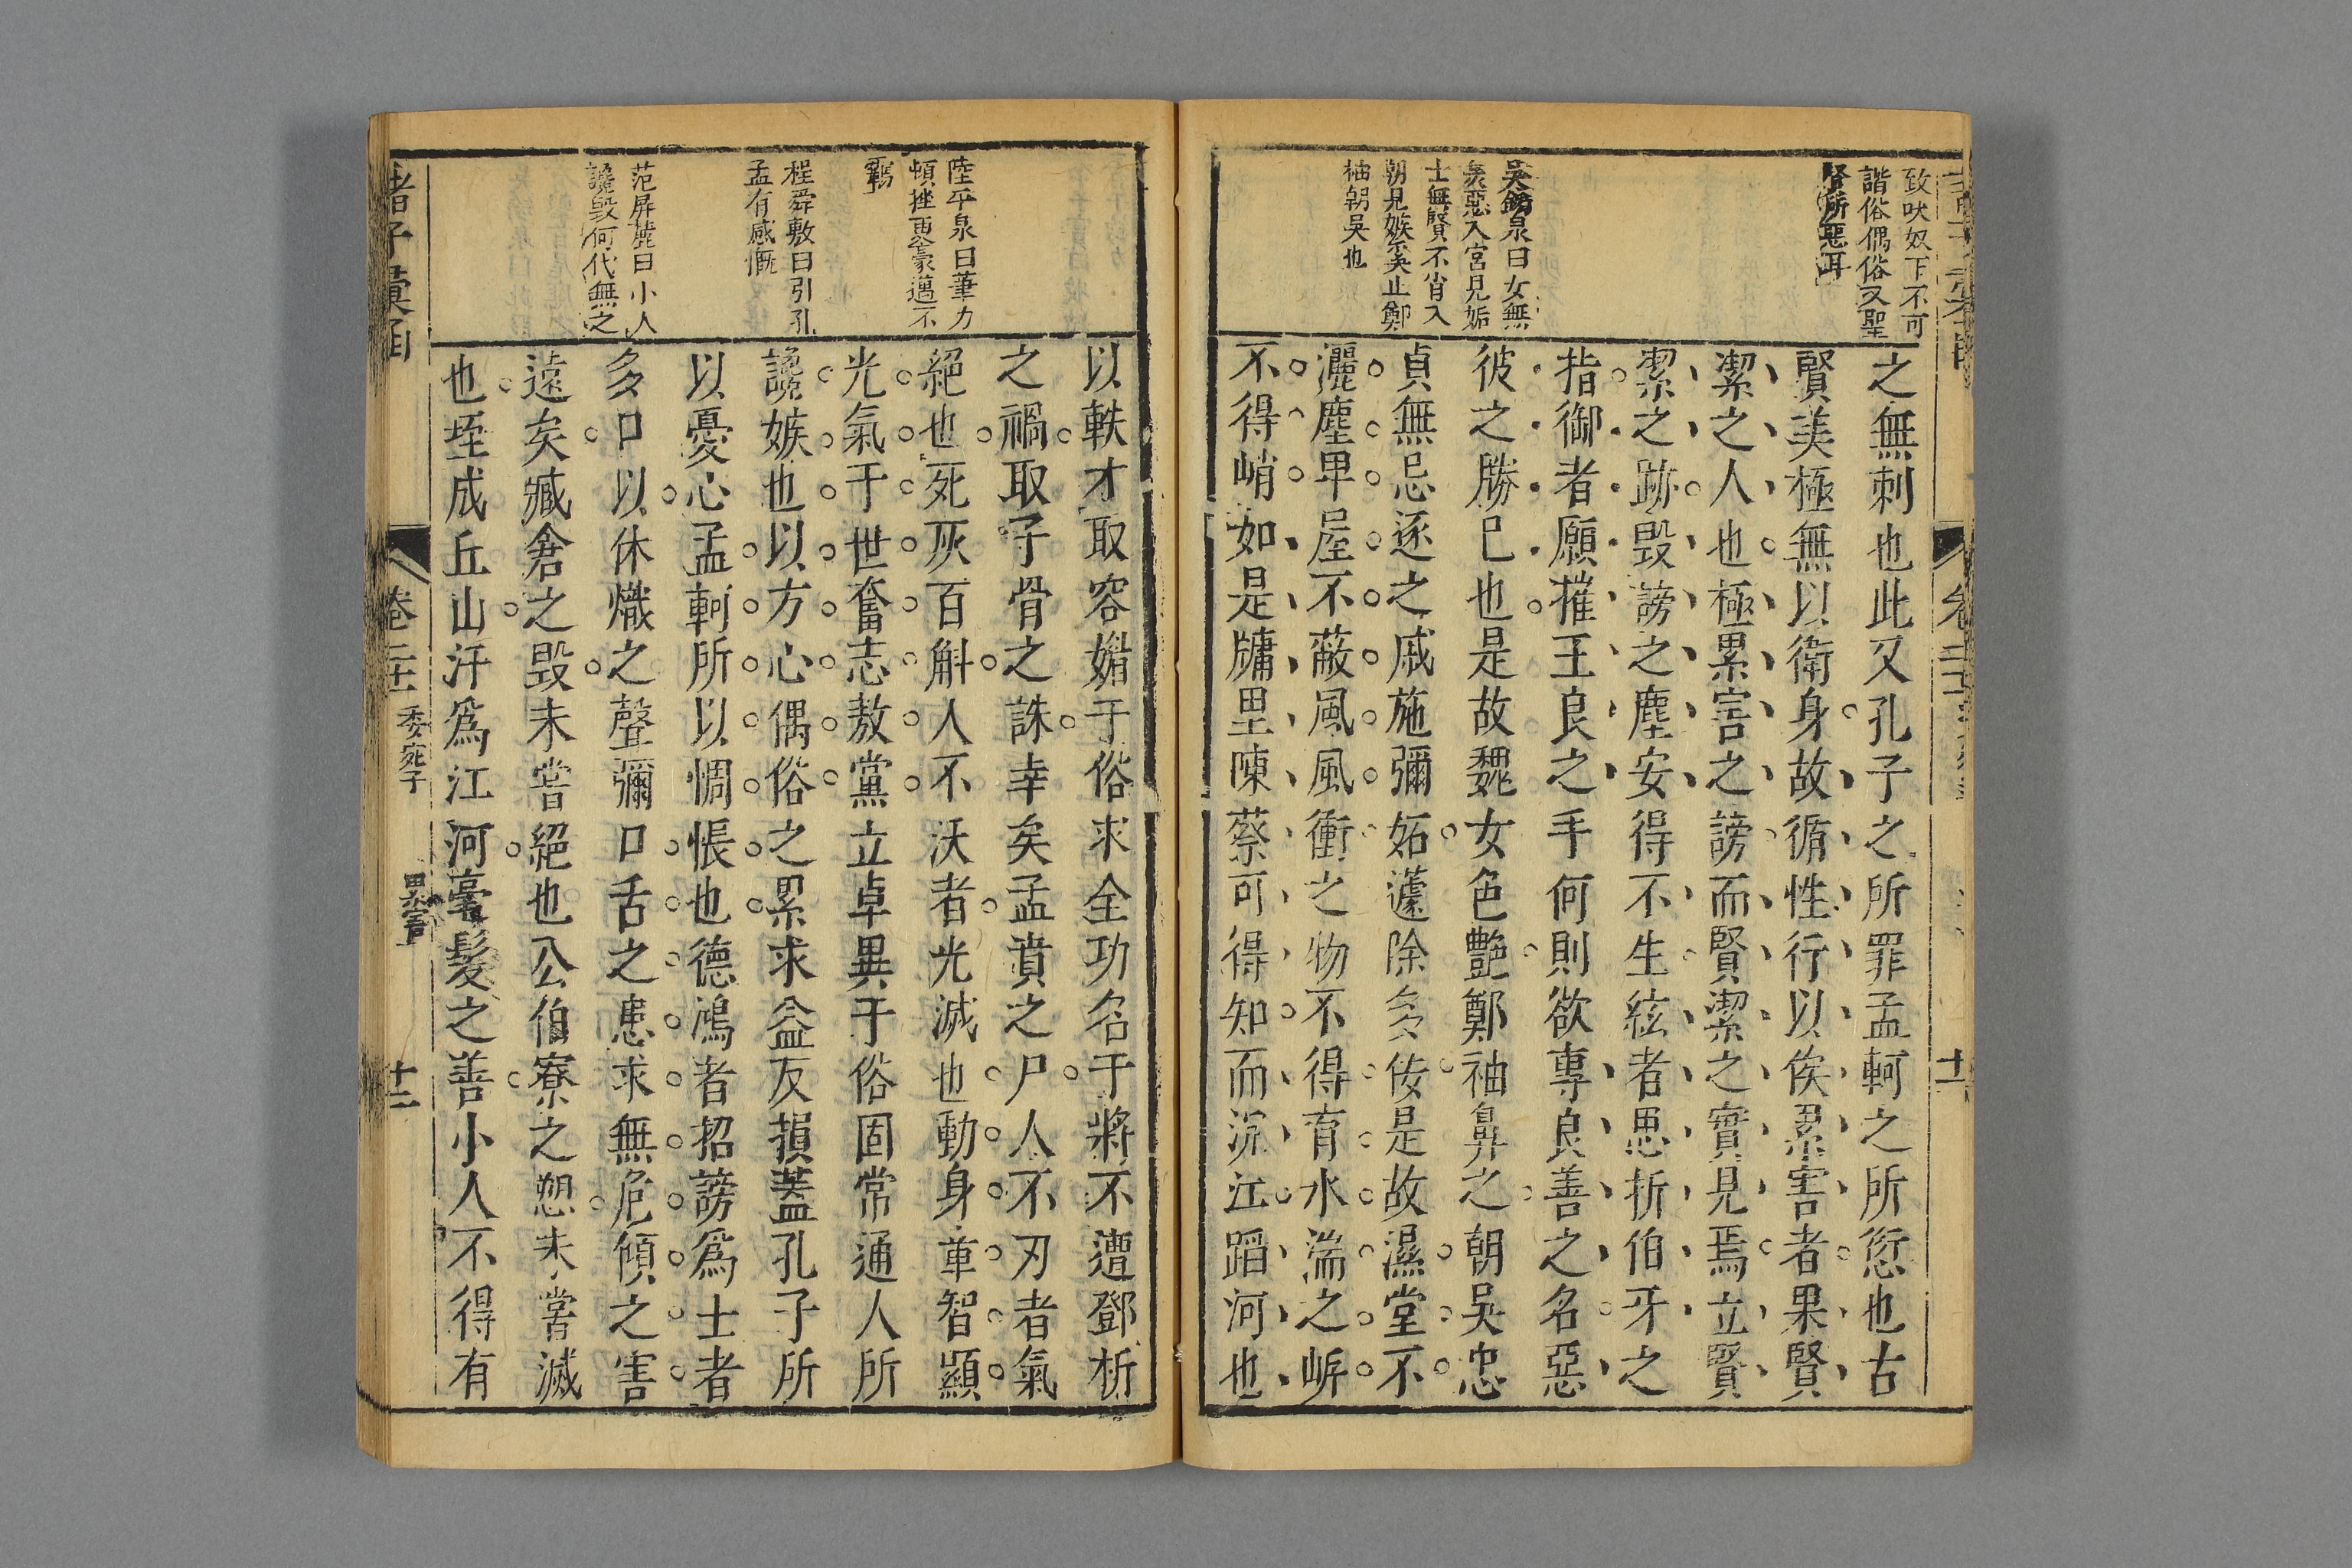 致吠奴下不可
諧俗偶俗又聖
賢所惡耳
吳鶴泉曰女無
羙惡入宮見妬
士無賢不肖入
朝見嫉矣止鄭
袖朝吳也
之無刺也此又孔子之所罪孟軻之所愆也古
賢美極無以衛身故循性行以俟累害者果賢
潔之人也極累害之謗而賢潔之實見焉立賢
潔之跡毀謗之塵安得不生絃者思折伯牙之
指御者願摧王良之手何則欲專良善之名惡
彼之勝巳也是故魏女色艷鄭袖鼻之朝吳忠
貞無忌逐之戚施彌妬蘧除多佞是故濕堂不
灑塵卑屋不蔽風風衝之物不得育水湍之岍
不得峭如是牗里陳蔡可得知而沉江蹈河也
陸平泉曰筆力
頓挫更豪邁不
羈
程舜敷曰引孔
孟有感慨
范屏麓曰小人
讒毀何代無之
以軼才取容媚于俗求全功名于將不遭鄧析
之禍取子骨之誅幸矣孟賁之尸人不刃者氣
絕也死灰百斛人不沃者光滅也動身章智顯
光氣于世奮志敖黨立卓異于俗固常通人所
讒嫉也以方心偶俗之累求益反損蓋孔子所
以憂心孟軻所以惆悵也德鴻者招謗爲士者
多口以休熾之聲彌口舌之患求無危傾之害
遠矣臧倉之毀未嘗絕也公伯寮之愬未嘗滅
也垤成丘山汙爲江河毫髮之善小人不得有
諸子彙函
委宛子
累害
十二